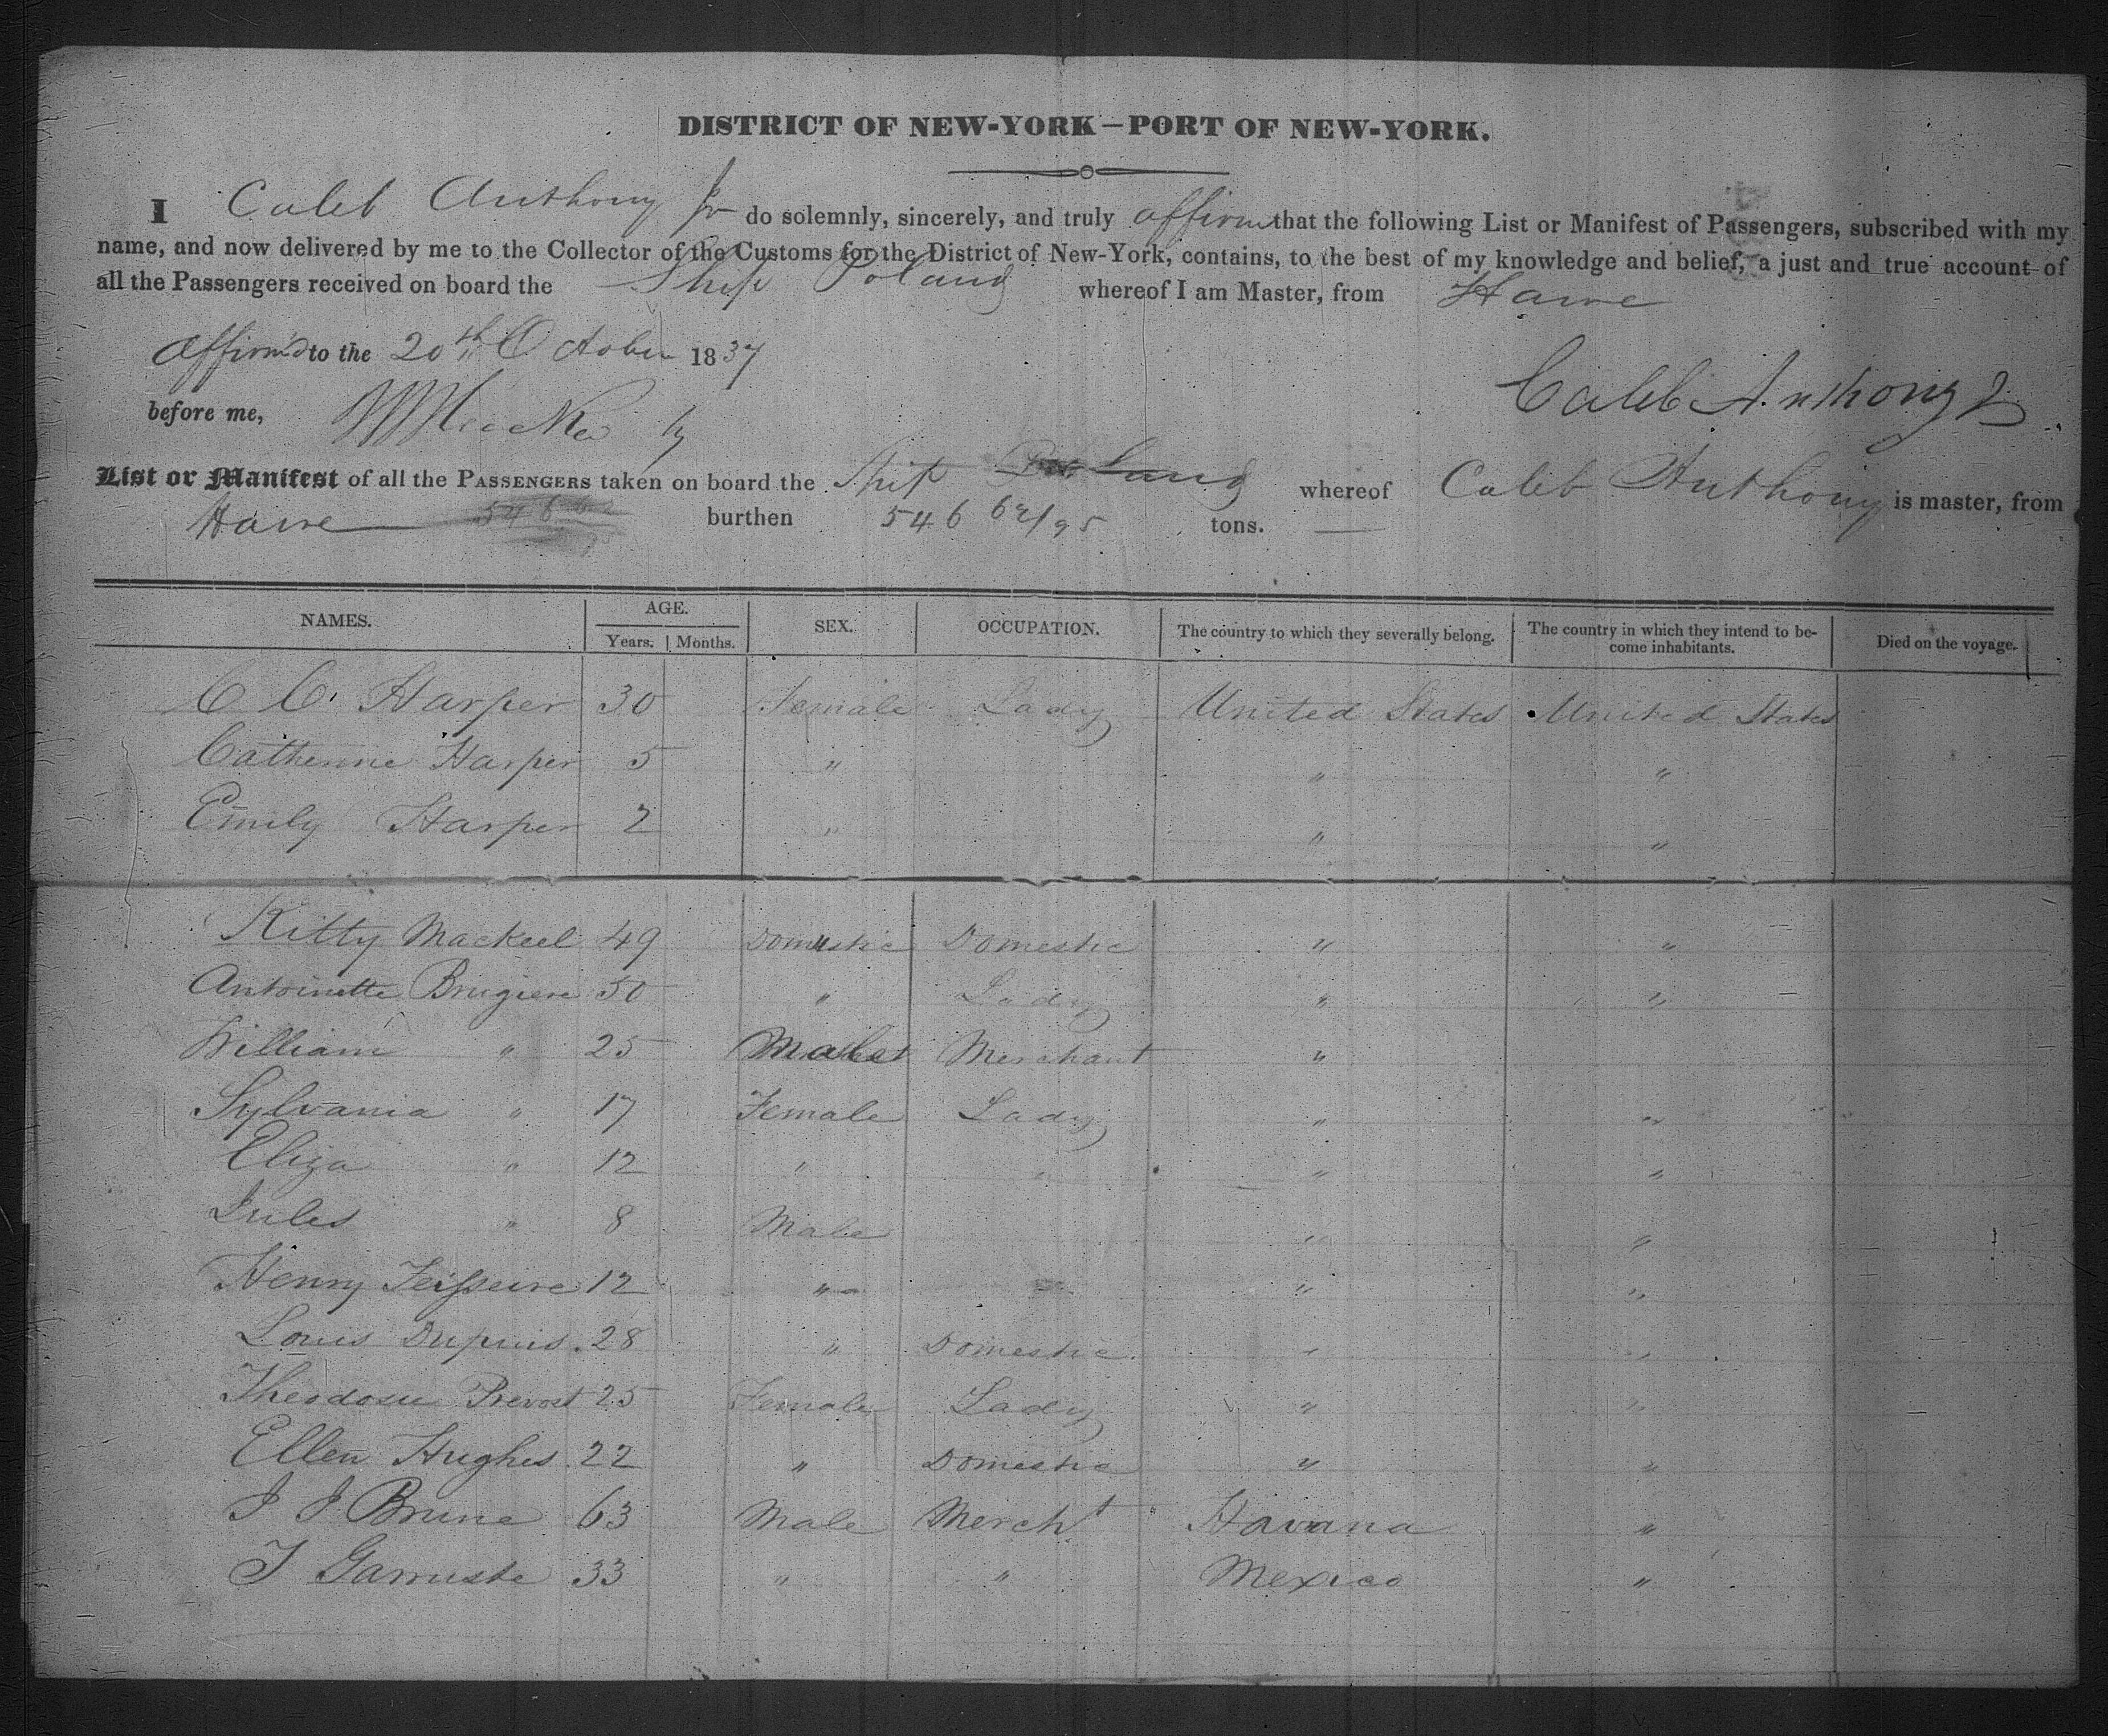 DISTRICT OF NEW-YORK—PORT OF NEW-YORK.
I Caleb Anthony Jr do solemnly, sincerely, and truly affirm that the following List or Manifest of Passengers, subscribed with my
name, and now delivered by me to the Collector of the Customs for the District of New-York, contains, to the best of my knowledge and belief, a just and true account of
all the Passengers received on board the Ship Poland whereof I am Master, from Havre
Affirm'd to the 20th October 1837
Caleb Anthony Jr
before me,
List or Manifest of all the PASSENGERS taken on board the Ship Poland whereof Caleb Anthony is master, from
Havre burthen 546 62/95 tons.
NAMES. AGE. SEX. OCCUPATION. The country to which they severally belong. The country in which they intend to be- Died on the voyage.
Years. Months. come inhabitants.
C C. Harper 30 Female Lady United States United States
Catherine Harper 5 " " "
Emily Harper 2 " " "
Kitty Mackeel 49 Domestic Domestic " "
Antoinette Brugiere 50 " Lady " "
William " 25 Male Merchant "
Sylvania " 17 Female Lady " "
Eliza " 12 " " " "
Jules " 8 Male " "
Henry Teisseire 12 " " "
Louis Dupuis. 28 " Domestic. " "
Theodosia Prevost 25 Female Lady " "
Ellen Hughes 22 " Domestic " "
J J Brune 63 Male Mercht Havana "
J Garruste 33 " " Mexico "